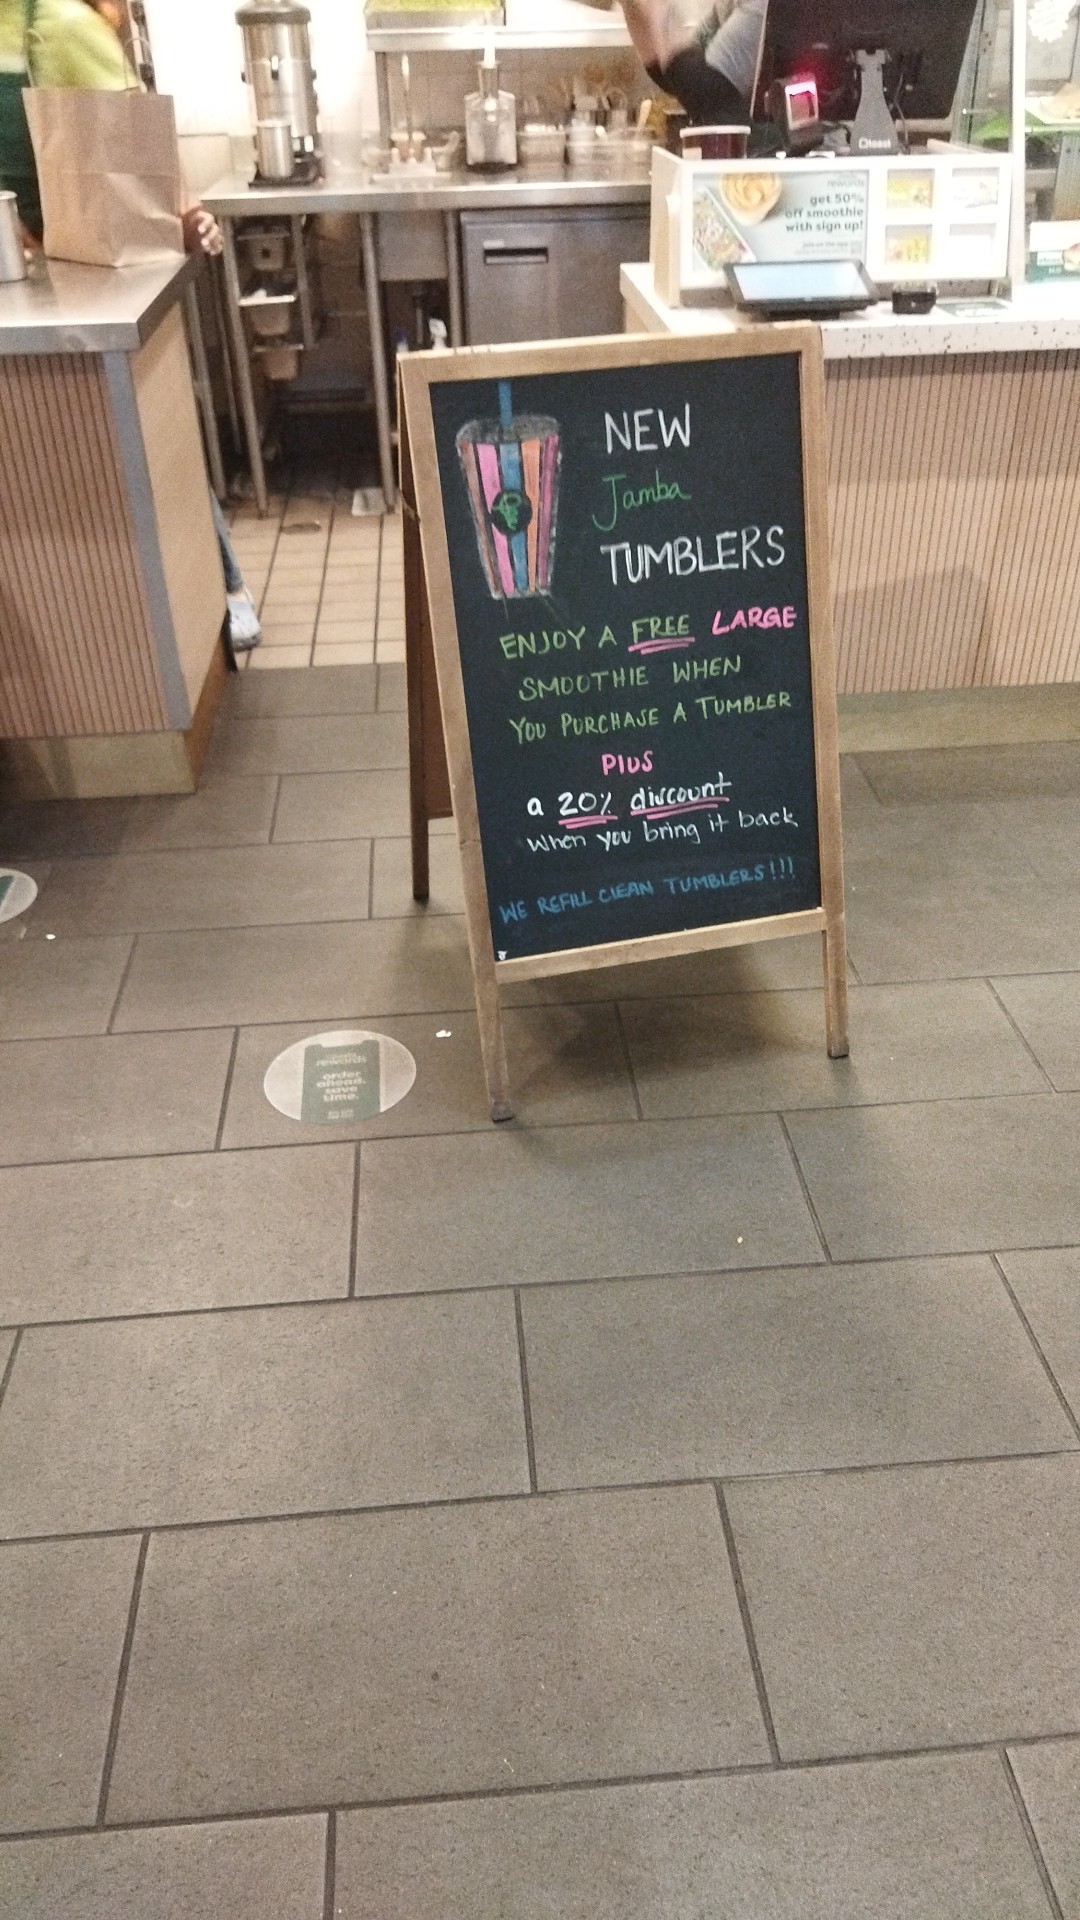 toast
rewards
get 50%
off smoothie
with sign up!
NEW
Jamba
TUMBLERS
ENJOY A FREE LARGE
SMOOTHIE WHEN
YOU PURCHASE A TUMBLER
PlUS
a 20% discount
when you bring it back
WE REFILL ClEAN TUMBLERS!!!
rewards
order
ahead.
save
time.